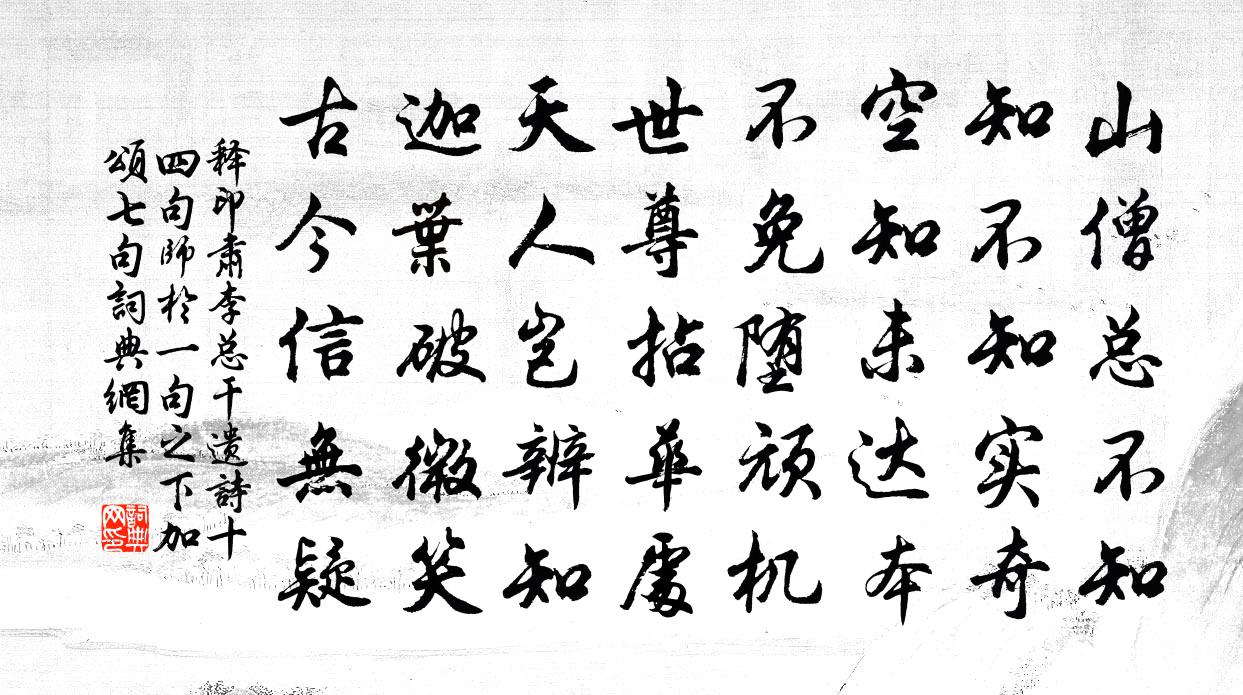 山僧总不知
知不知实奇
空知未达本
不免堕顽机
世尊拈华处
天人岂辨知
迦叶破微笑
古今信無疑
释印肃李总干遗詩十
四句師於一句之下加
頌七句詞典網集
詞典网印